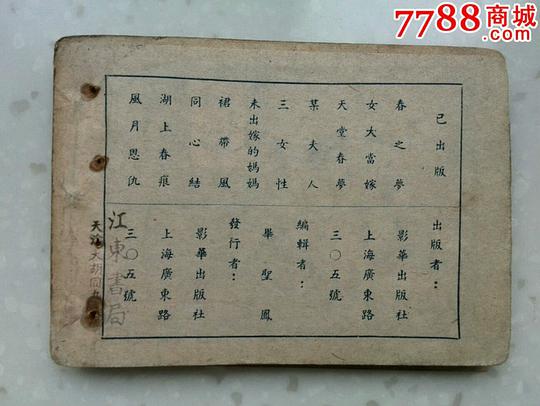 7788商城
.com
已出版
春之夢
女大當嫁
天堂春夢
某夫人
三女性
未出嫁的媽媽
裙帶風
同心結
湖上春痕
風月恩仇
出版者：
影華出版社
上海廣東路
三〇五號
編輯者：
畢聖鳳
發行者：
影華出版社
上海廣東路
三〇五號
江東書局